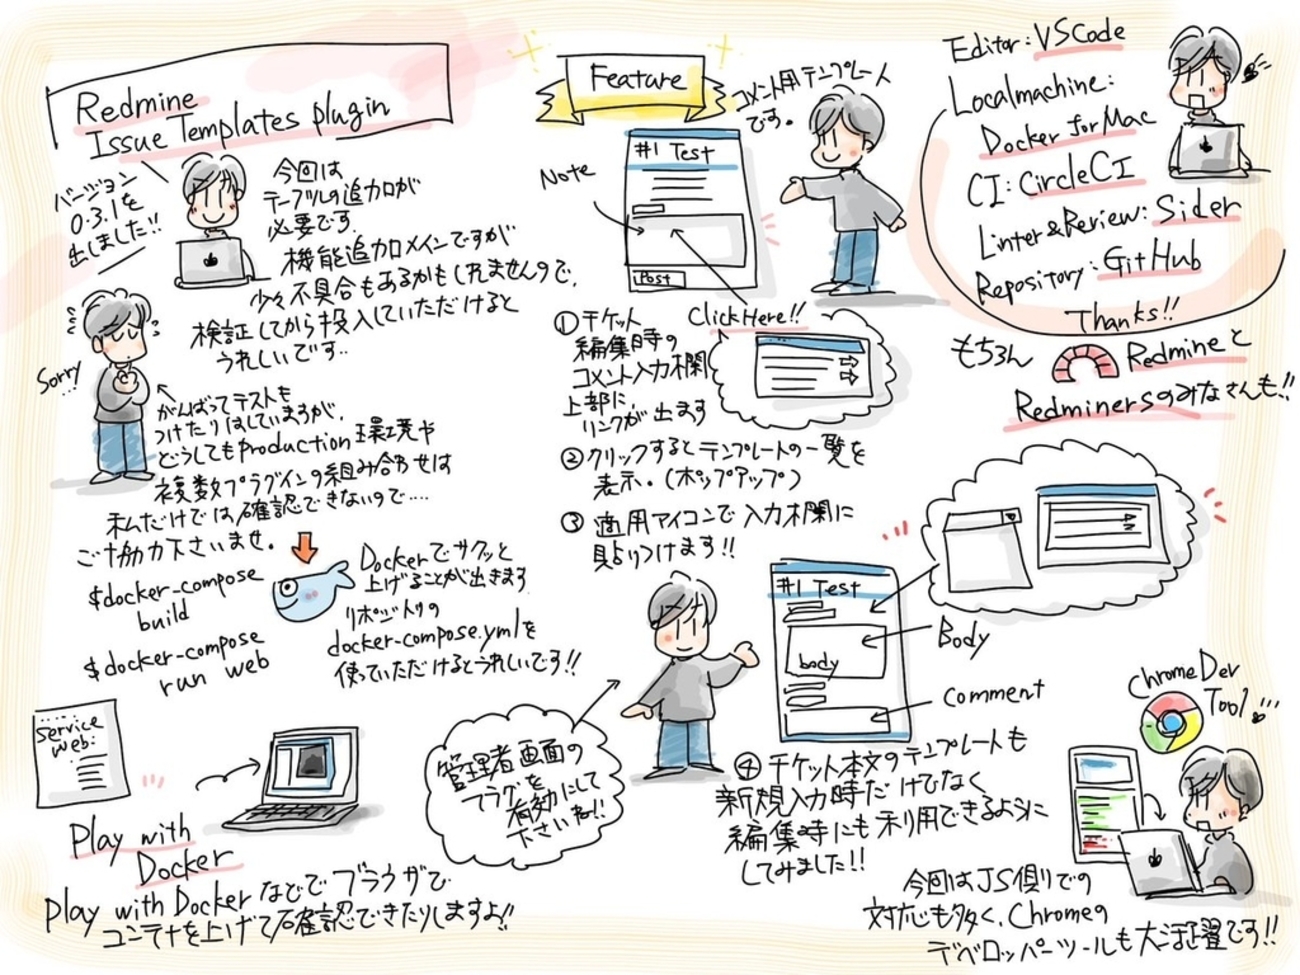 Redmine
Issue Templates plugin
バージョン
0.3.1を
出しました!!
今回は
テーブルの追加が
必要です.
機能追加メインですが
少々不具合もあるかもしれませんので,
検証してから投入していただけると
うれしいです..
Sorry
...
がんばってテストも
つけたりはしていますが,
どうしてもproduction環境や
複数プラグインの組み合わせは
私だけでは確認できないので....
ご協力下さいませ.
$docker-compose
build
$docker-compose
run web
Dockerでサクッと
上げることが出きます
リポジトリの
docker-compose.ymlを
使っていただけるとうれしいです!!
service
web:
Play with
Docker
play with Docker などで ブラウザで
コンテナを上げて確認できたりしますよ!!
Feature
コメント用テンプレート
です。
Note
#1 Test
Post
Click Here!!
①チケット
編集時の
コメント入力欄
上部に,
リンクが出ます
②クリックするとテンプレートの一覧を
表示。(ポップアップ)
③ 適用アイコンで入力欄に
貼りつけます!!
管理者画面の
フラグを
有効にして
下さいね!!
#1 Test
body
Body
comment
④チケット本文のテンプレートも
新規入力時だけでなく
編集時にも利用できるように
してみました!!
Editor: VSCode
Localmachine:
Docker for Mac
CI: CircleCI
Linter&Review: Sider
Repository: GitHub
Thanks!!
もちろん Redmineと
Redminersのみなさんも!!
Chrome Dev
Tool!!
今回はJS側での
対応も多く、Chromeの
デベロッパーツールも大活躍です!!